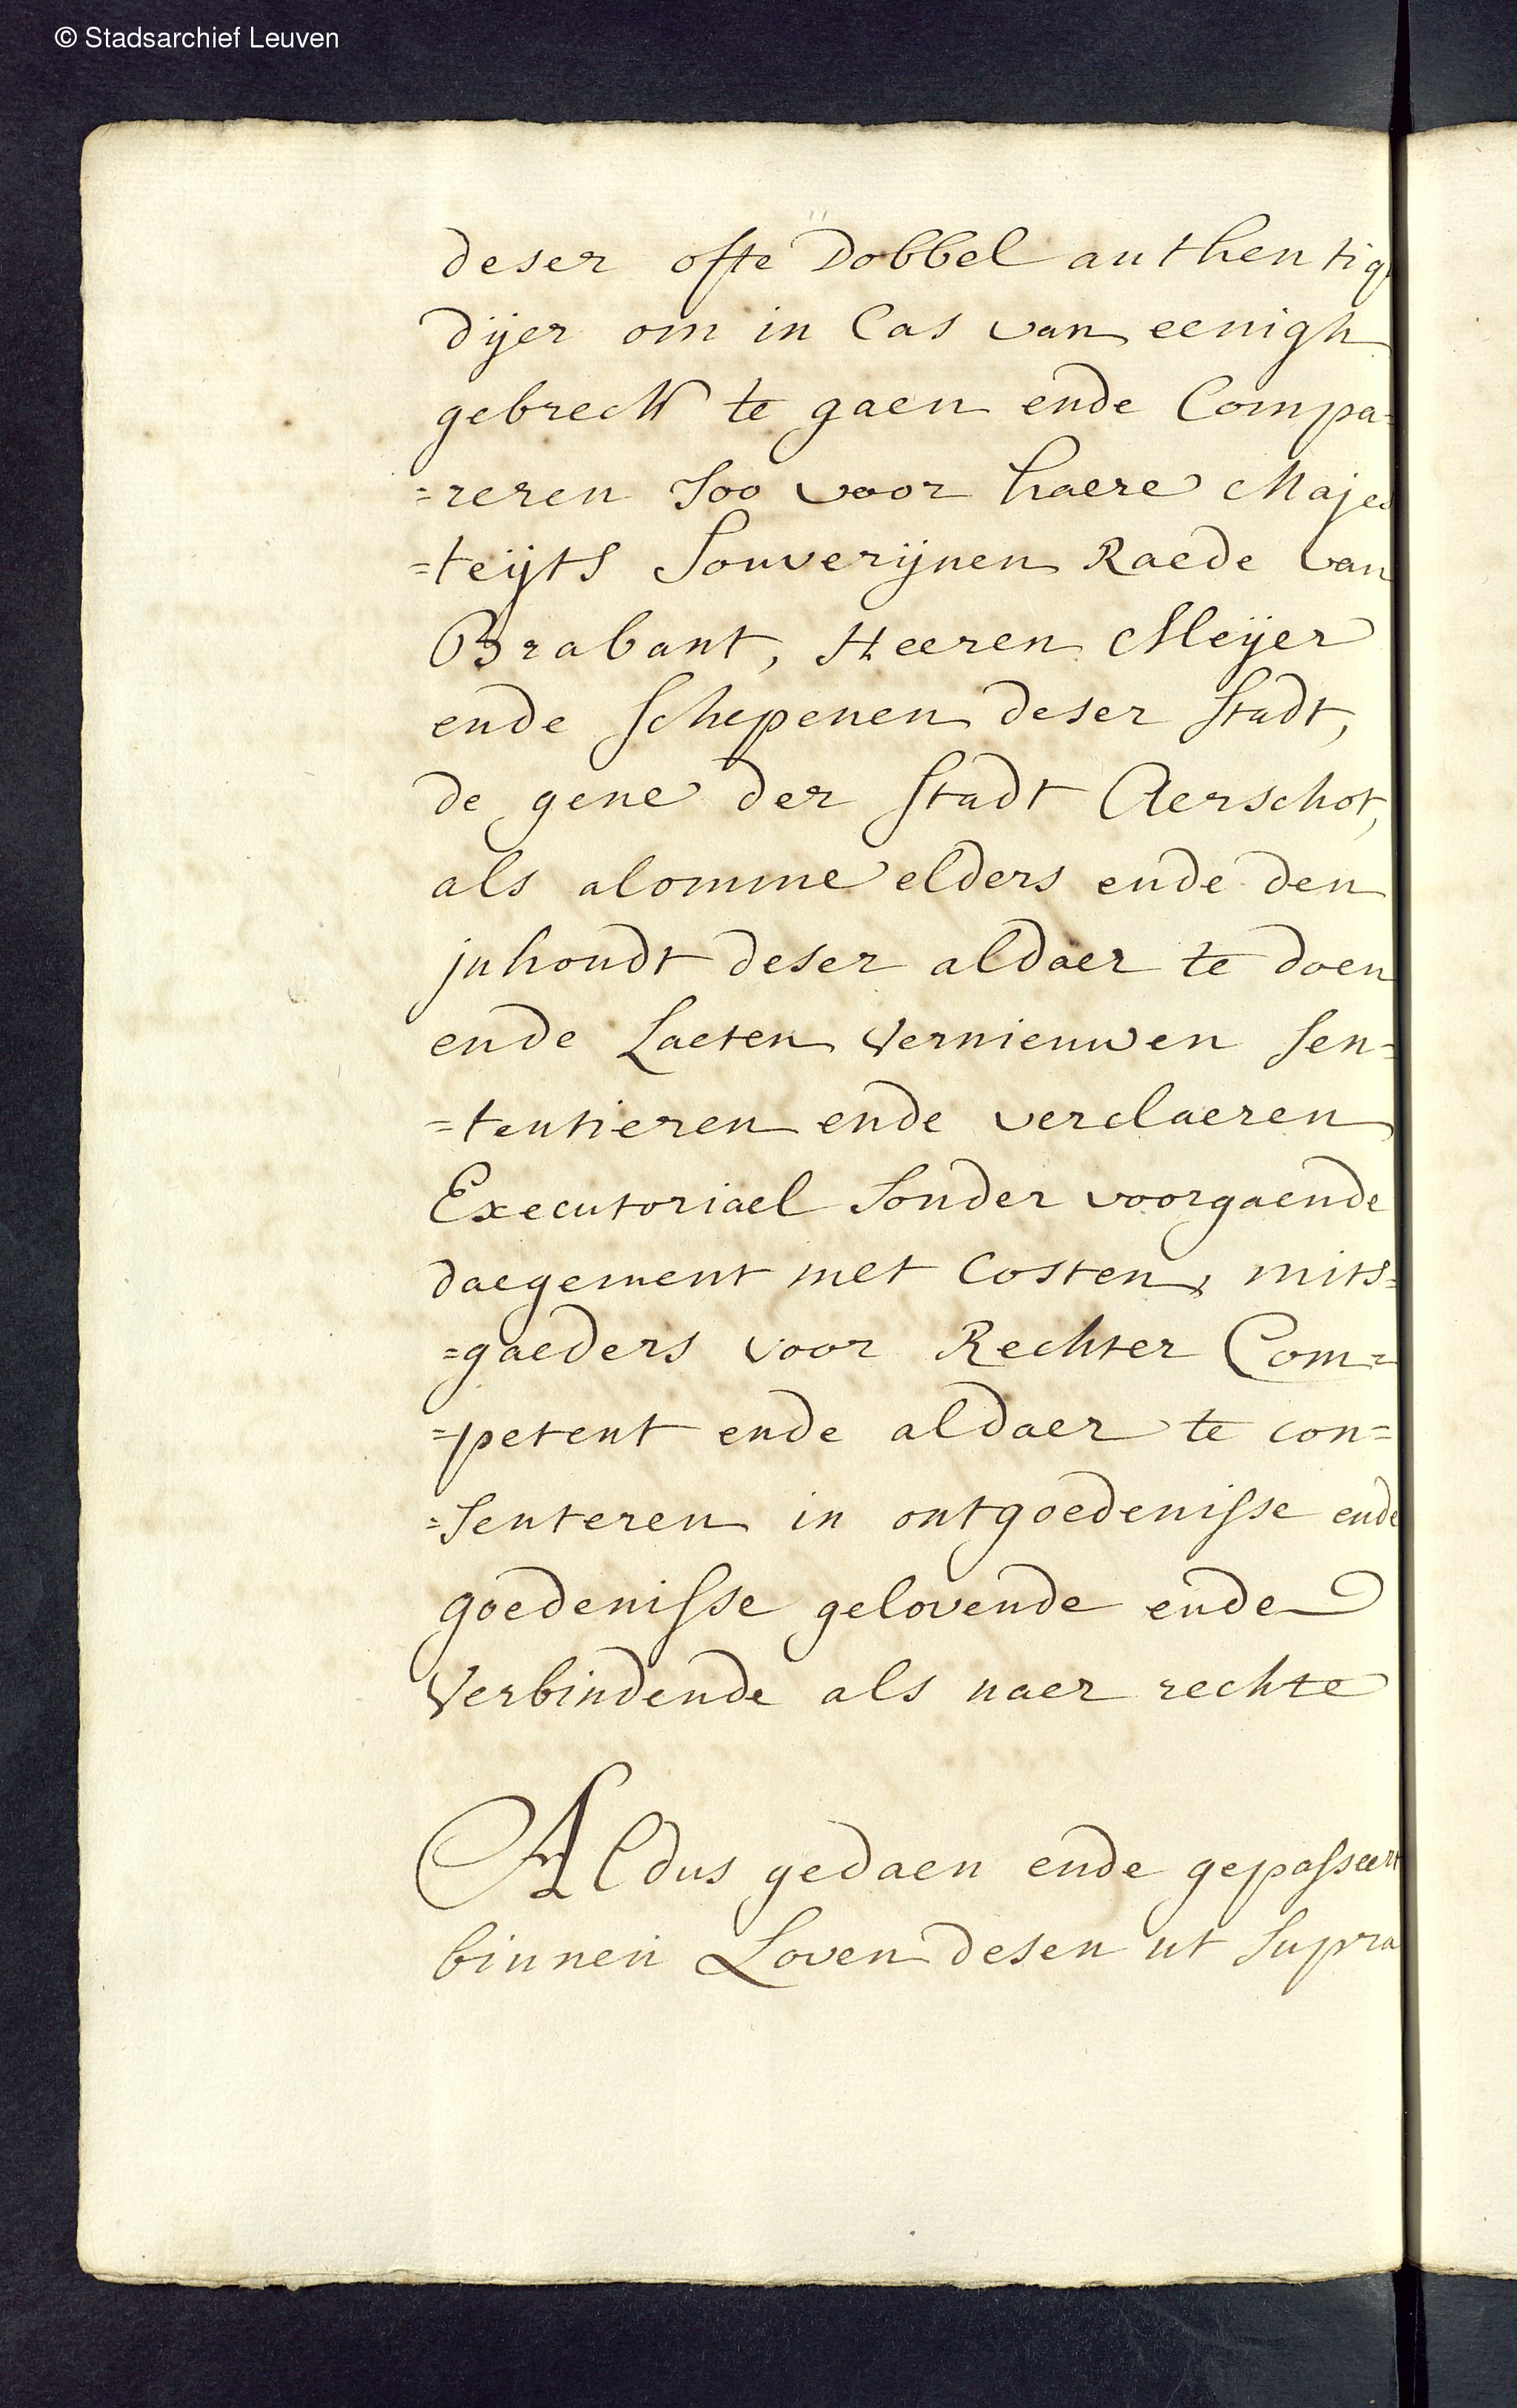 © Stadsarchief Leuven
deser ofte Dobbel authentiq
dijer om in Cas van eenigh
gebreck te gaen ende Compa=
=reren soo voor haere Majes
=teijts Souverijnen Raede van
Brabant, Heeren Meijer
ende schepenen deser stadt,
de gene der stadt Aerschot,
als alomme elders ende den
jnhoudt deser aldaer te doen
ende Laeten Vernieuwen sen=
=tentieren ende verclaeren
Executoriael sonder voorgaende
daegement met Costen, mits=
=gaeders voor Rechter Com=
=petent ende aldaer te con=
=senteren in ontgoedenisse ende
goedenisse gelovende ende
Verbindende als naer rechte
Aldus gedaen ende gepasseert
binnen Loven desen ut supra